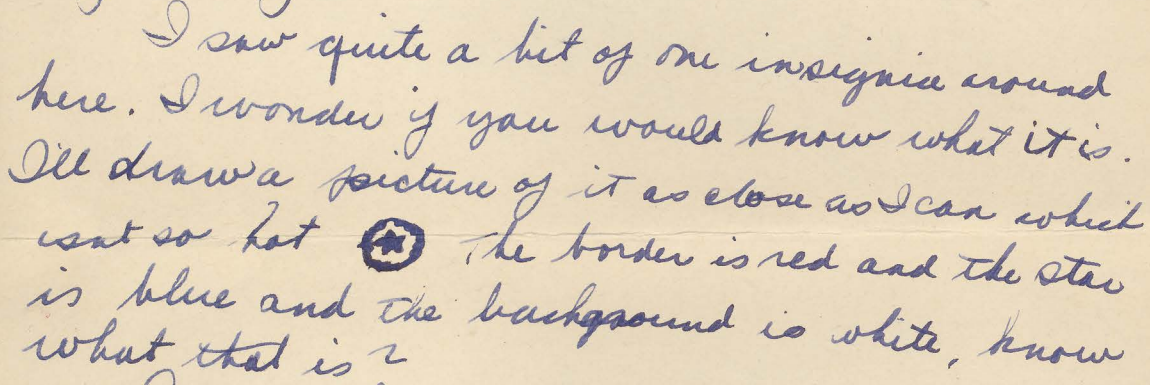 I saw quite a bit of one insignia around
here. I wonder if you would know what it is.
I'll draw a picture of it as close as I can which
isnt so hot The border is red and the star
is blue and the background is white, know
what that is?